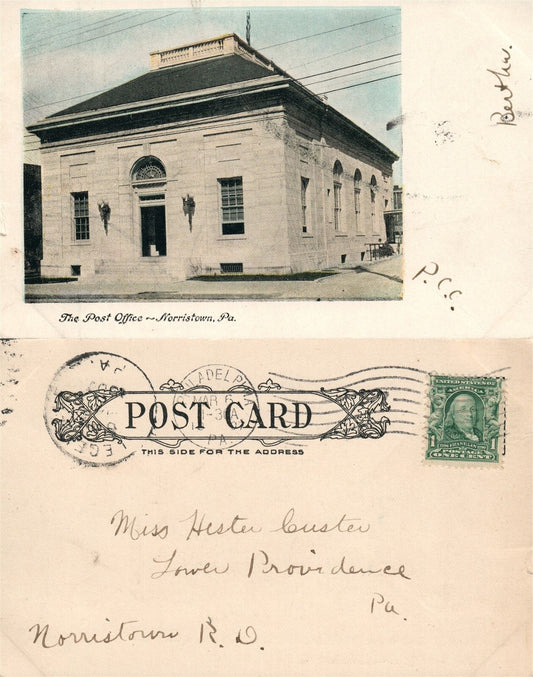 Bertha.
P.C.C.
The Post Office ~ Norristown, Pa.
PHILADELPHIA
MAR 6
PA
PA.
POST CARD
THIS SIDE FOR THE ADDRESS
UNITED STATES OF
FRANKLIN
POSTAGE
1 ONE CENT 1
Miss Hester Custer
Lower Providence
Pa.
Norristown R.D.